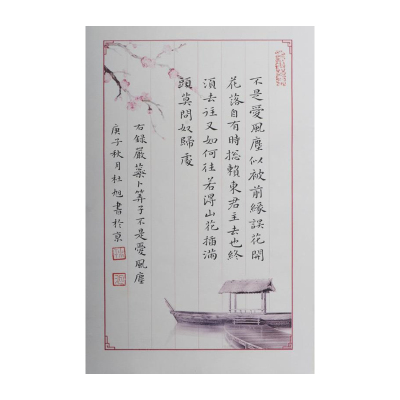 不是愛風塵似被前緣誤花開
花落自有時総賴東君主去也終
須去住又如何住若得山花插滿
頭莫問奴歸處
右錄嚴蘂卜算子不是愛風塵
庚子秋月杜旭書於京